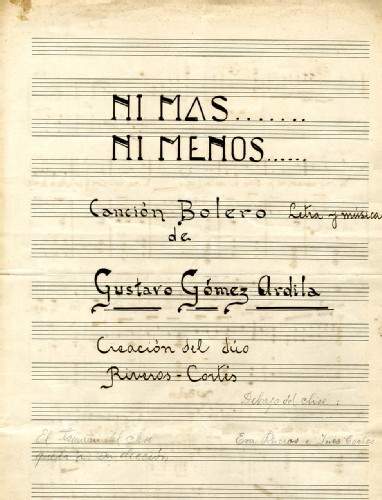 NI MAS.......
NI MENOS......
Canción Bolero Letra y música
de
Gustavo Gómez Ardila
Creación del dúo
Riveros - Cortés
Debajo del clise :
El tamaño del clise
queda a su